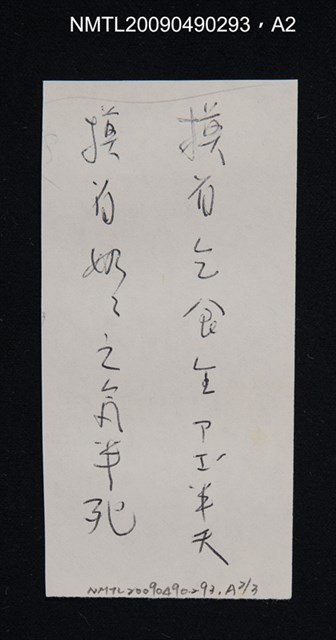 NMTL20090490293，A2
摸有乞食全卩五半天
摸有奶々之氣半死
NMTL20090490293，A2/3